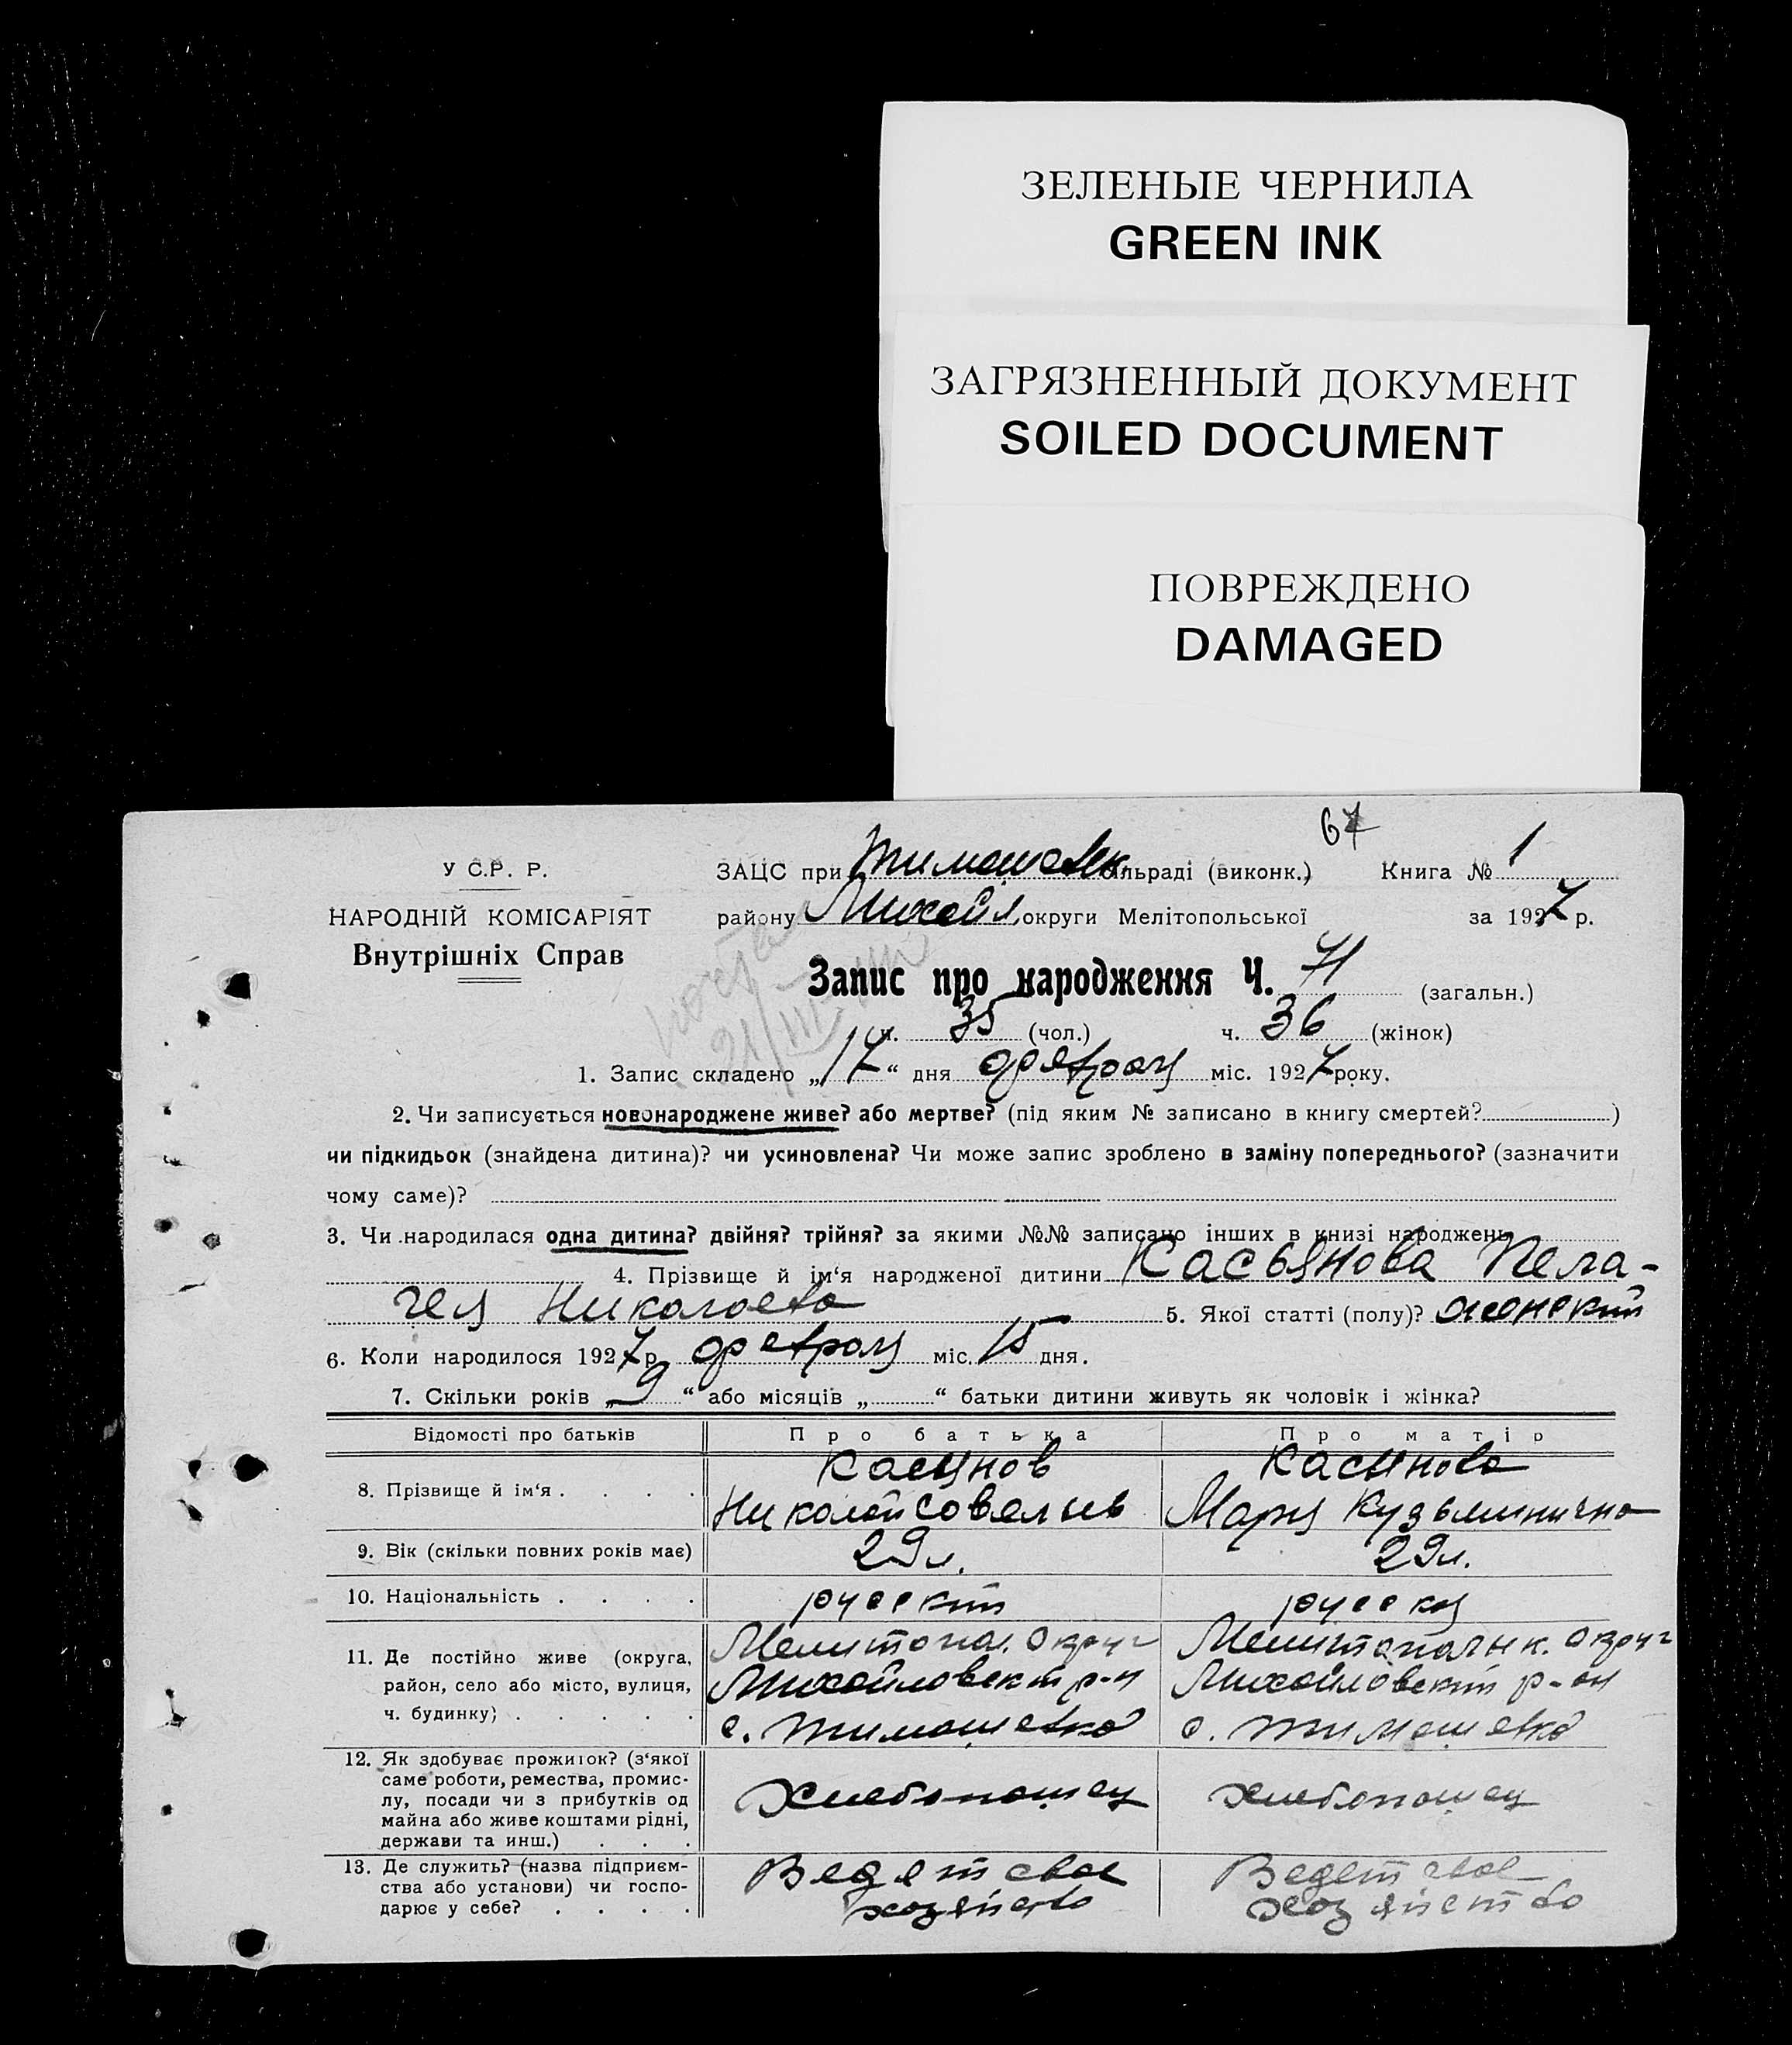 ЗЕЛЕНЫЕ ЧЕРНИЛА
GREEN INK
ЗАГРЯЗНЕННЫЙ ДОКУМЕНТ
SOILED DOCUMENT
ПОВРЕЖДЕНО
DAMAGED
67
У С.Р. Р.
НАРОДНІЙ КОМІСАРІЯТ
Внутрішніх Справ
ЗАЦС при Тимошевк. сільраді (виконк.) Книга № 1
району Михайл. округи Мелітопольської за 1927 р.
Запис про народження Ч. 71 (загальн.)
ч. 35 (чол.) ч. 36 (жінок)
21/III
1. Запис складено „17“ дня февраля міс. 1927 року.
2. Чи записується новонароджене живе? або мертве? (під яким № записано в книгу смертей? )
чи підкидьок (знайдена дитина)? чи усиновлена? Чи може запис зроблено в заміну попереднього? (зазначити
чому саме)?
3. Чи народилася одна дитина? двійня? трійня? за якими №№ записано інших в книзі народжень
4. Прізвище й ім‘я народженої дитини Касьянова Пела-
гея Николаева 5. Якої статті (полу)? женский
6. Коли народилося 1927 р. февраля міс. 15 дня.
7. Скільки років „9“ або місяців „ “ батьки дитини живуть як чоловік і жінка?
Відомості про батьків Про батька Про матір
8. Прізвище й ім‘я . . . . Касянов Касянова
Николай Мария Кузьминична
9. Вік (скільки повних років має) 29 л. 29 л.
10. Національність . . . . русский русская
11. Де постійно живе (округа, район, село або місто, вулиця, ч. будинку) . . . . .
Мелитопол. Округ Мелитопольск. Округ
Михайловский р-н Михайловский р-он
с. Тимошевка с. Тимошевка
12. Як здобуває прожиток? (з‘якої саме роботи, ремества, промислу, посади чи з прибутків од майна або живе коштами рідні, держави та инш.) . . .
Хлебопашец хлебопашец
13. Де служить? (назва підприємства або установи) чи господарює у себе? . . . .
Ведет свое Ведет свое
хозяйство хозяйство